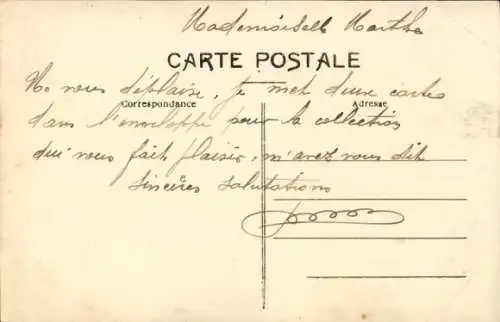 Mademoiselle Marthe
CARTE POSTALE
Ne vous déplaise, je met deux cartes
Correspondance Adresse
dans l'enveloppe pour la collection
qui vous fait plaisir, m'avez vous dit
Sincères salutations